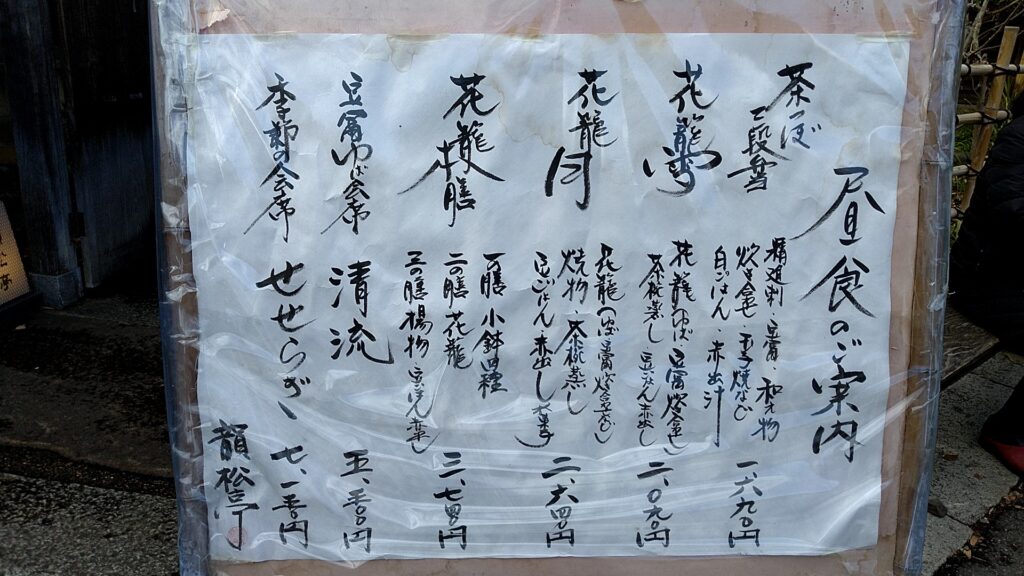 昼食のご案内
茶つぼ
二段重
精進刺・豆腐・和え物
炊き合せ・玉子焼など
白ごはん・赤出汁
一、六九〇円
花籠
花籠(ゆば豆腐炊合せ
茶椀蒸し 豆ごはん赤出し)
二、〇九〇円
花籠月
花籠(ゆば豆腐炊合せなど)
焼物・茶椀蒸し
豆ごはん・赤出し
二、六四〇円
花籠膳
一の膳 小鉢四種
二の膳 花籠
三の膳 揚物 豆ごはん
三、七四〇円
豆富ゆば会席
清流
五、五〇〇円
季節の会席
せせらぎ
七、一五〇円